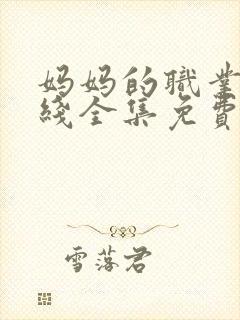 妈妈的職業
綫全集免費
雪落君